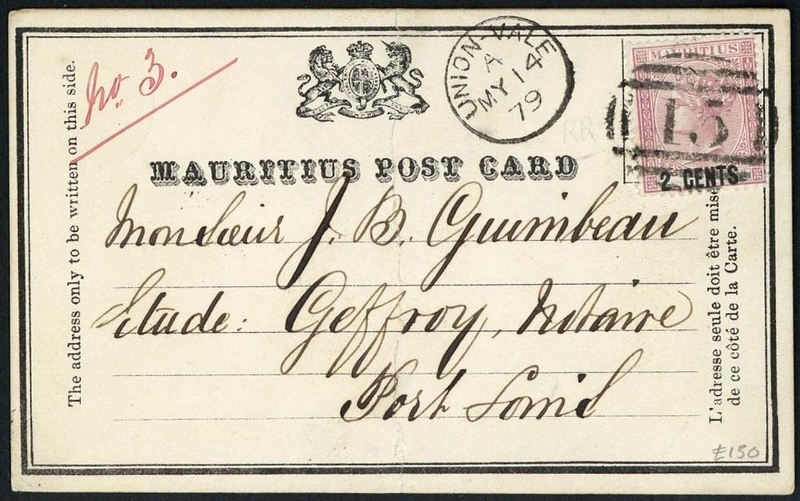 The address only to be written on this side.
No. 3.
UNION-VALE
A
MY 14
79
MAURITIUS
15
2 CENTS
MAURITIUS POST CARD
Monsieur J. B. Guimbeau
Etude: Geffroy, Notaire
Port Louis
L'adresse seule doit être mise
de ce côté de la Carte.
£150